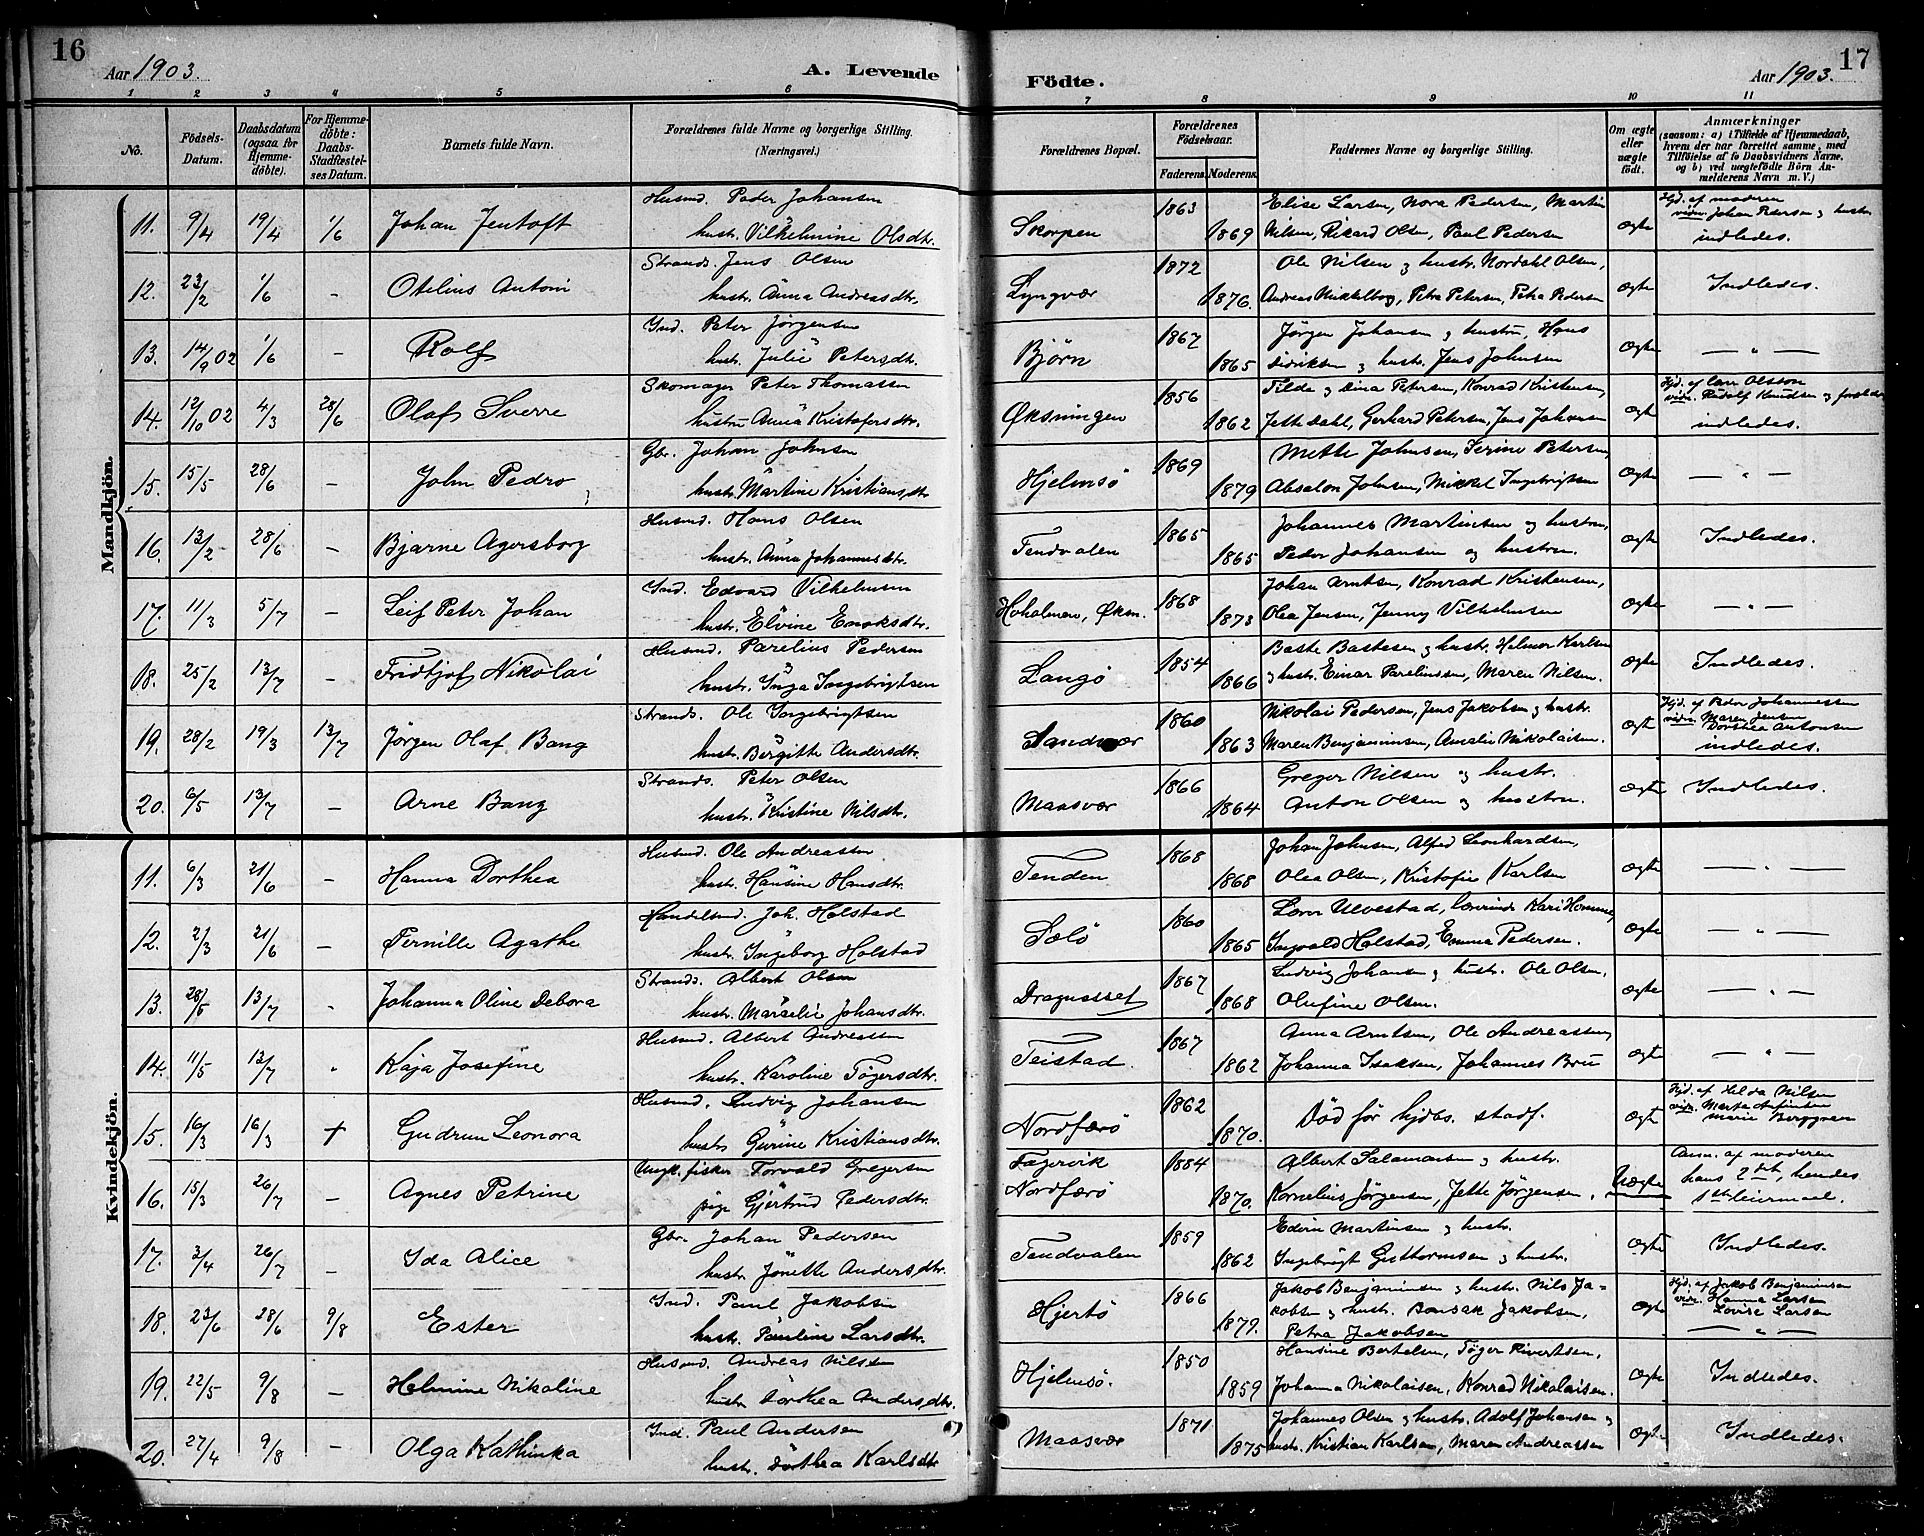 16
Aar 1903.
A. Levende
Födte.
17
Aar 1903.
1 2 3 4 5 6 7 8 9 10 11
No.
Födsels-Datum.
Daabsdatum (ogsaa for Hjemmedöbte).
For Hjemmedöbte: Daabs-Stadfæstelses Datum.
Barnets fulde Navn.
Forældrenes fulde Navne og borgerlige Stilling.
(Næringsvei.)
Forældrenes Bopæl.
Forældrenes Födselsaar.
Faderens. Moderens.
Faddernes Navne og borgerlige Stilling.
Om ægte eller uægte födt.
Anmærkninger
(saasom: a) i Tilfælde af Hjemmedaab, hvem der har forrettet samme, med Tilföielse af to Daabsvidners Navne, og b) ved uægtefödte Börn Anmelderens Navn m. V.)
Mandkjön.
11. 9/4 19/4 1/6 Johan Jentoft
Husmd. Peder Johansen
hustr. Vilhelmine Olsdtr.
Skorpen 1863 1869
Elise Larsen, Nora Pedersen, Martin
Nilsen, Rikard Olsen, Paul Pedersen
ægte
Hjd. af moderen
vidn. Johan Petersen og hustr.
indledes.
12. 23/2 1/6 – Otelius Antoni
Strands. Jens Olsen
hustr. Anna Andreasdtr.
Lyngvær 1872 1876.
Ole Nilsen og hustr. Nordahl Olsen,
Andreas Mikkelborg, Petra Petersen, Petra Pedersen
ægte Indledes.
13. 14/9 02 1/6 – Rolf
Ind. Peter Jørgensen
hustr. Julie Petersdtr.
Bjørn 1867 1865
Jørgen Johansen og hustru, Hans
Sivertsen og hustr. Jens Johnsen
ægte — " —
14. 12/10 02 4/3 28/6 Olaf Sverre
Skomager Peter Thomassen
hustru Anna Kristofersdtr.
Øksningen 1856 1862
Tilda og Dina Petersen, Konrad Kristensen,
Jette Dahl, Gerhard Petersen, Jens Johansen
ægte
Hjd. af Carr Olsson
vidn. Rudolf Knudsen og forældre
indledes.
15. 15/5 28/6 – John Pedro
Gbr. Johan Johnsen
hustr. Martine Kristiansdtr.
Hjelmsö 1869 1879
Mette Johnsen, Serine Petersen,
Absalon Johnsen, Mikkel Ingebrigtsen
ægte — " —
16. 13/2 28/6 – Bjarne Agersborg
Husmd. Hans Olsen
hustr. Anna Johannesdtr.
Tendvalen 1865 1865
Johannes Martinsen og hustru,
Peder Johansen og hustru.
ægte Indledes.
17. 11/3 5/7 – Leif Peter Johan
Ind. Edvard Vilhelmsen
hustr. Elvine Enoksdtr.
Hoholmen, Øksn. 1868 1873
Johan Arntsen, Konrad Kristensen,
Olea Jensen, Jenny Vilhelmsen
ægte — " —
18. 25/2 13/7 – Fridtjof Nikolai
Husmd. Parelius Pedersen
hustr. Inga Ingebrigtsen
Langö 1854 1866
Baste Bastesen og hustr. Helmer Karlsen
og hustr. Einar Pareliussen, Maren Nilsen.
ægte Indledes.
19. 28/2 19/3 13/7 Jørgen Olaf Bang
Strands. Ole Ingebrigtsen
hustr. Bergitte Andersdtr.
Sandvær 1860 1863
Nikolai Pedersen, Jens Jakobsen og hustr.
Maren Benjaminsen, Amalie Nikolaisen.
ægte
Hjd. af Peder Johannessen
vidn. Maren Jensen
Dorthea Antonsen
indledes.
20. 6/5 13/7 – Arne Bang
Strands. Peter Olsen
hustr. Kristine Nilsdtr.
Maasvær 1866 1864
Greger Nilsen og hustr.
Anton Olsen og hustru.
ægte Indledes.
Kvindekjön.
11. 6/3 21/6 – Hanna Dorthea
Husmd. Ole Andreassen
hustr. Hansine Hansdtr.
Tenden 1868 1868
Johan Johnsen, Alfred Leonhardsen,
Olea Olsen, Kristofie Karlsen
ægte — " —
12. 2/3 21/6 – Pernille Agathe
Handelsmd. Joh. Holstad
hustr. Ingeborg Holstad
Sælö 1860 1865
Lærer Ulvestad, lærerinde Kari Homme,
Ingvald Holstad, Emma Pedersen.
ægte — " —
13. 28/5 13/7 – Johanna Oline Debora
Strands. Albert Olsen
hustr. Marselie Johansdtr.
Dragnesset 1867 1868
Ludvig Johansen og hustr. Ole Olsen,
Olufine Olsen.
ægte — " —
14. 11/5 13/7 " Kaja Josefine
Husmd. Albert Andreassen
hustr. Karoline Tøgersdtr.
Teistad. 1867 1862
Anna Arntsen, Ole Andreassen,
Johanna Isaksen, Johannes Bru
ægte — " —
15. 16/3 16/3 + Gudrun Leonora
Husmd. Ludvig Johansen
hustr. Gurine Kristiansdtr.
Nordfærö 1862 1870.
Död før hjdbs. stadf.
ægte
Hjd. af Hilda Nilsen
vidn. Marta Anfinsen
Marie Berggren
16. 15/3 26/7 – Agnes Petrine
Ungk. fisker Torvald Gregersen
pige Gjertrud Pedersdtr.
Fagervik
Nordfærö 1884 1870.
Albert Salamonsen og hustr.
Kornelius Jørgensen, Jette Jørgensen.
Uægte
Anm. af moderen
hans 2det, hendes
1ste leiermaal.
17. 3/4 26/7 – Ida Alice
Gbr. Johan Pedersen
hustr. Jonette Andersdtr.
Tendvalen 1859 1862
Edvin Martinsen og hustr.
Ingebrigt Guttormsen og hustr.
ægte Indledes.
18. 23/6 28/6 9/8 Ester
Ind. Paul Jakobsen
hustr. Pauline Larsdtr.
Hjertö 1866 1879.
Jakob Benjaminsen og hustr. Nils Ja-
kobsen og hustr. Bonsak Jakobsen,
Petra Jakobsen
ægte
Hjd. af Jakob Benjaminsen
vidn. Hanna Larsen
Lovise Larsen
— " —
19. 22/5 9/8 – Helmine Nikoline
Husmd. Andreas Nilsen
hustr. Dorthea Andersdtr.
Hjelmsö. 1850 1859
Hansine Bertelsen, Tøger Rivertsen,
Johanna Nikolaisen, Konrad Nikolaisen.
ægte Indledes.
20. 27/4 9/8 – Olga Kathinka
Ind. Paul Andersen
hustr. Dorthea Karlsdtr
Maasvær 1871 1875
Johannes Olsen og hustr. Adolf Johansen og
hustr. Kristian Karlsen, Maren Andreassen
ægte. Indledes.